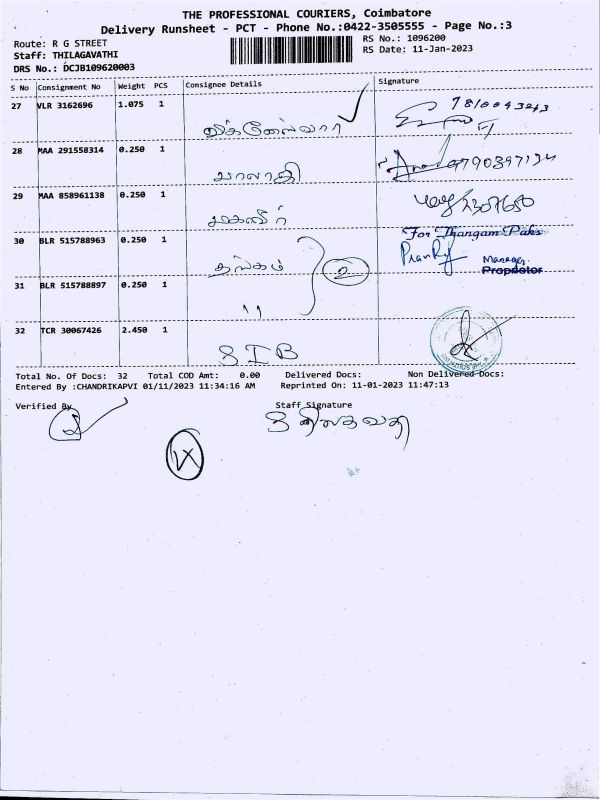 THE PROFESSIONAL COURIERS, Coimbatore
Delivery Runsheet - PCT - Phone No.:0422-3505555 - Page No.:3
Route: R G STREET
RS No.: 1096200
Staff: THILAGAVATHI
RS Date: 11-Jan-2023
DRS No.: DCJB109620003
S No Consignment No Weight PCS Consignee Details Signature
27 VLR 3162696 1.075 1
28 MAA 291558314 0.250 1 பாலாஜி
29 MAA 858961138 0.250 1 மகளிர்
For Thangam Paks
30 BLR 515788963 0.250 1 தங்கம் 2 Manager
Proprietor
31 BLR 515788897 0.250 1 11
32 TCR 30067426 2.450 1 SIB
Total No. Of Docs: 32 Total COD Amt: 0.00 Delivered Docs: Non Delivered Docs:
Entered By :CHANDRIKAPVI 01/11/2023 11:34:16 AM Reprinted On: 11-01-2023 11:47:13
Verified By Staff Signature